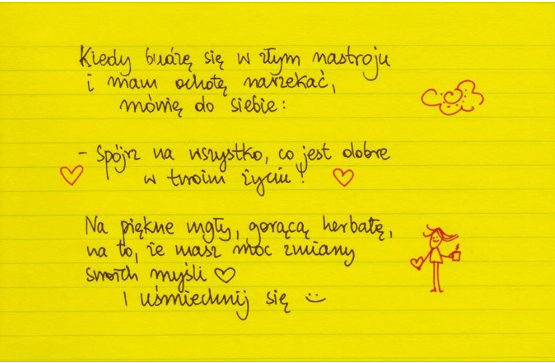 Kiedy budzę się w złym nastroju
i mam ochotę narzekać,
mówię do siebie:
- Spójrz na wszystko, co jest dobre
w twoim życiu!
Na piękne mgły, gorącą herbatę,
na to, że masz moc zmiany
swoich myśli ♡
I uśmiechnij się :)